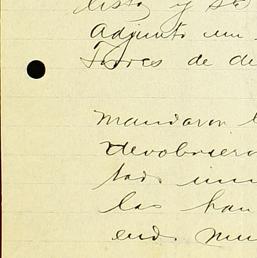 lista y st
Adjunto un
Flores de di
mandaron l
devolvieron
tad. un
las han
end. mu